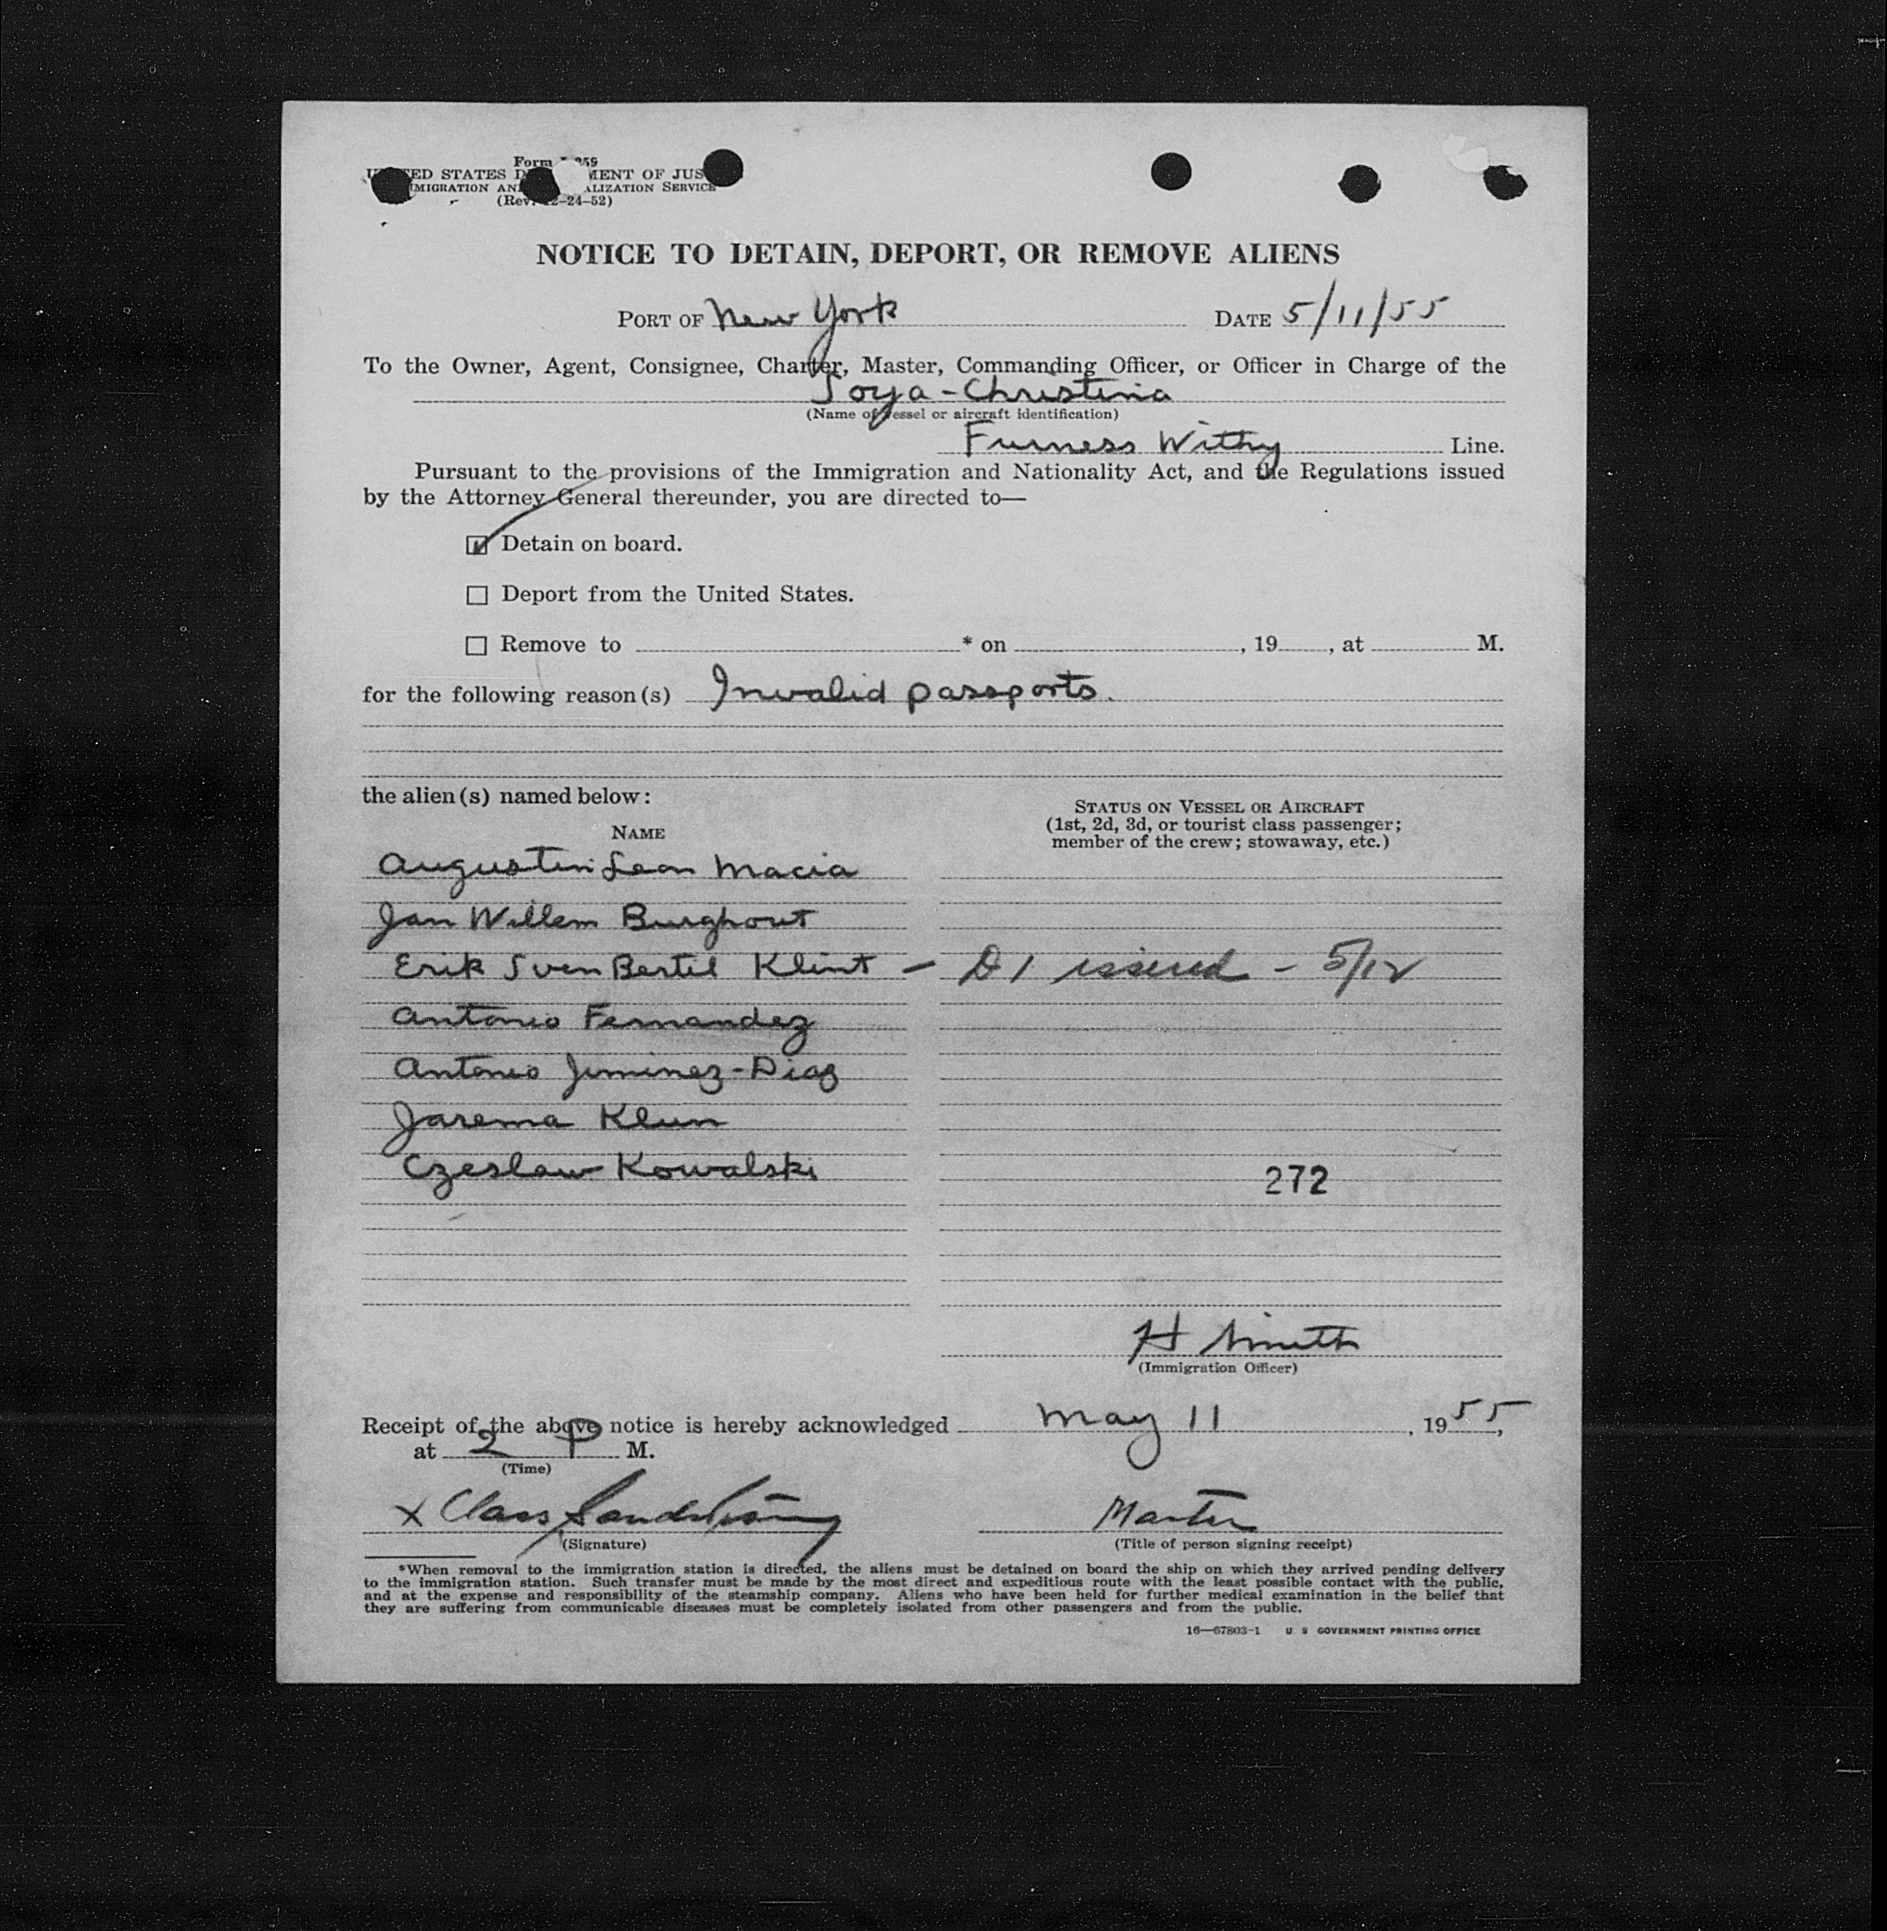 Form I-259
UNITED STATES DEPARTMENT OF JUSTICE
IMMIGRATION AND NATURALIZATION SERVICE
(Rev. 12-24-52)
NOTICE TO DETAIN, DEPORT, OR REMOVE ALIENS
PORT OF New York DATE 5/11/55
To the Owner, Agent, Consignee, Charter, Master, Commanding Officer, or Officer in Charge of the
Soya-Christina
(Name of vessel or aircraft identification)
Furness Withy Line.
Pursuant to the provisions of the Immigration and Nationality Act, and the Regulations issued
by the Attorney General thereunder, you are directed to—
☑ Detain on board.
☐ Deport from the United States.
☐ Remove to * on , 19 , at M.
for the following reason(s) Invalid passports.
the alien(s) named below:
STATUS ON VESSEL OR AIRCRAFT
(1st, 2d, 3d, or tourist class passenger;
member of the crew; stowaway, etc.)
NAME
Augustin Leon Macia
Jan Willem Burghout
Erik Sven Bertil Klint — D1 issued - 5/12
Antonio Fernandez
Antonio Jiminez-Diaz
Jarema Klun
Czeslaw Kowalski
272
H Smith
(Immigration Officer)
Receipt of the above notice is hereby acknowledged May 11, 1955,
at 2 P M.
(Time)
x Claes Sandström Master
(Signature) (Title of person signing receipt)
*When removal to the immigration station is directed, the aliens must be detained on board the ship on which they arrived pending delivery
to the immigration station. Such transfer must be made by the most direct and expeditious route with the least possible contact with the public,
and at the expense and responsibility of the steamship company. Aliens who have been held for further medical examination in the belief that
they are suffering from communicable diseases must be completely isolated from other passengers and from the public.
16—67803-1 U. S. GOVERNMENT PRINTING OFFICE